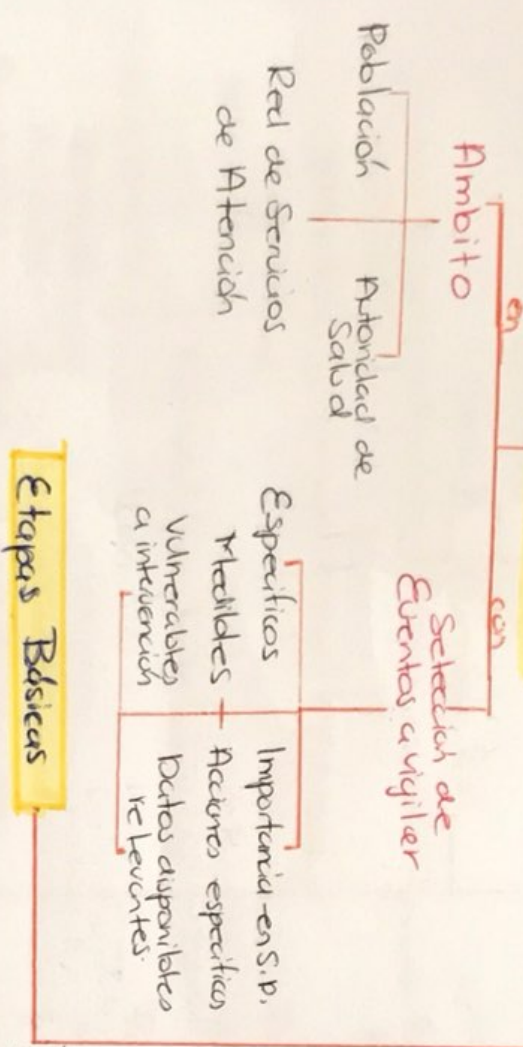 en
Ambito
Población
Autoridad de
Salud
Red de Servicios
de Atención
con
Selección de
Eventos a vigilar
Específicos
Medibles
Vulnerables
a intervención
Importancia en S.P.
Acciones específicas
Datos disponibles
relevantes.
Etapas Básicas